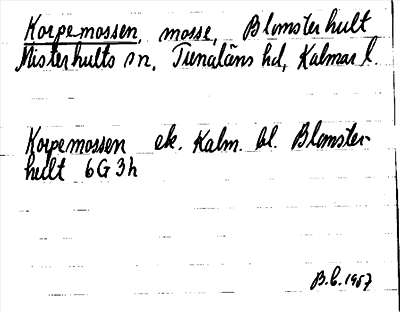 Korpemossen, mosse, Blomsterhult
Misterhults sn, Tunaläns hd, Kalmar l.
Korpemossen ek. Kalm. bl. Blomster-
hult 6G3h
B.C. 1957